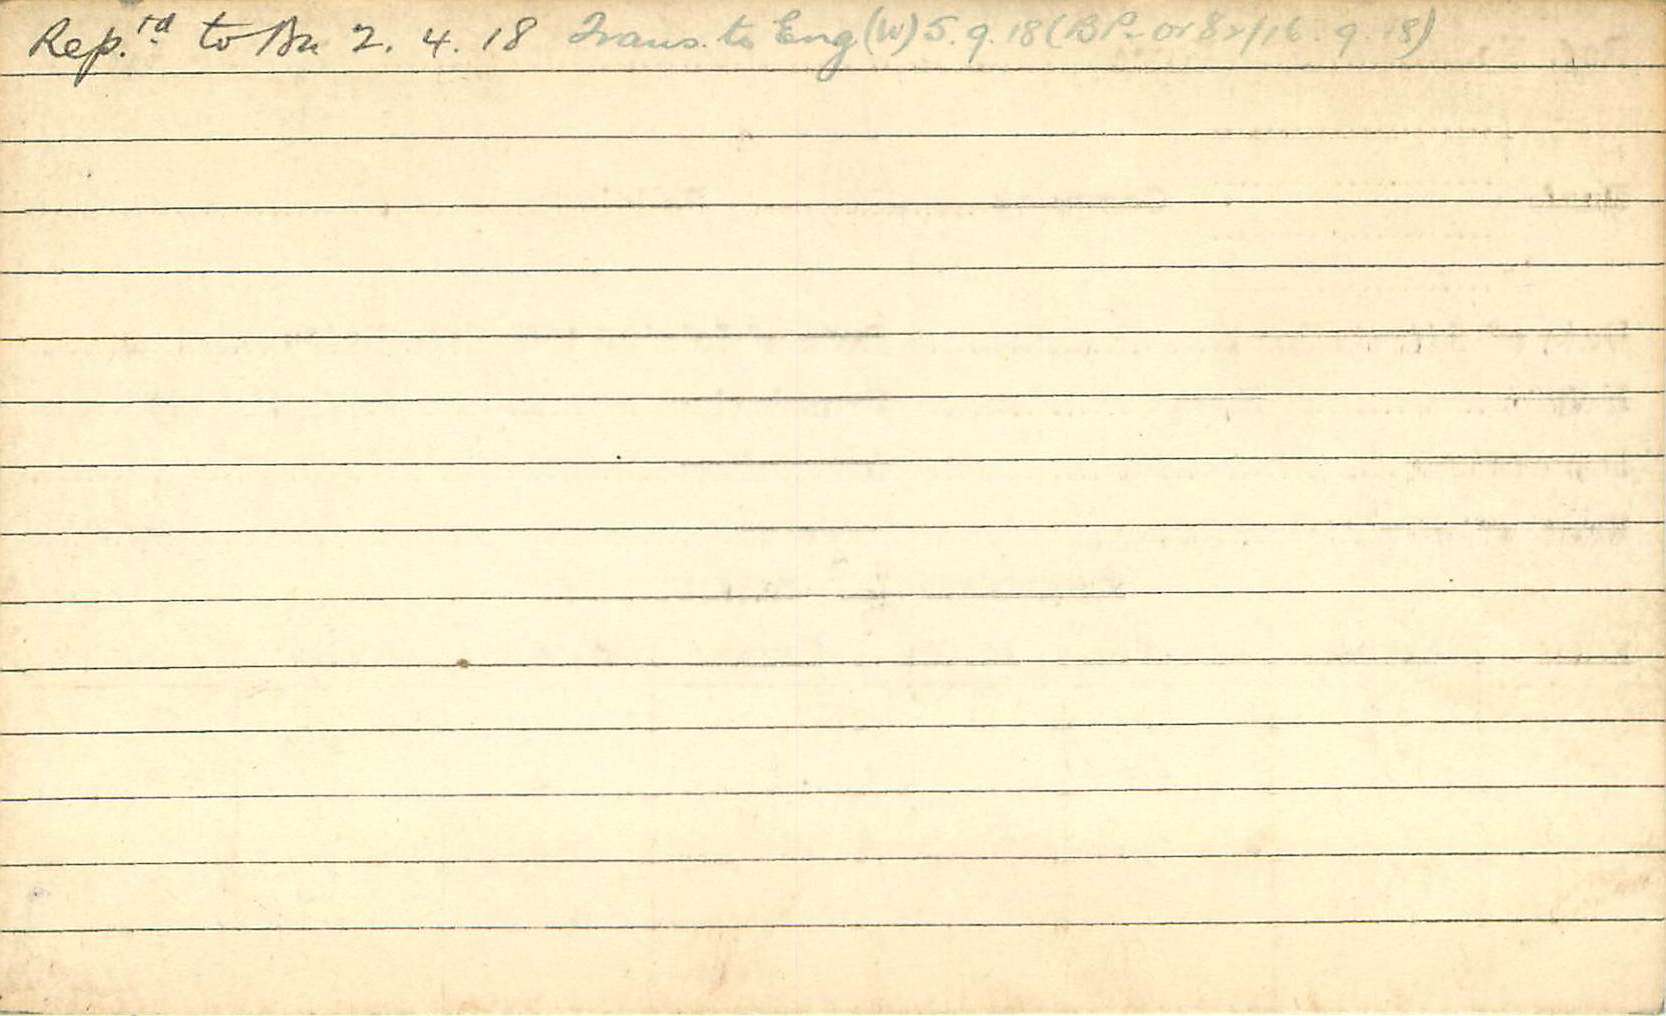 Rep.rd to Bn 2. 4. 18 Trans. to Eng (W) 5. 9. 18 (B Pt or 82/16. 9. 18)